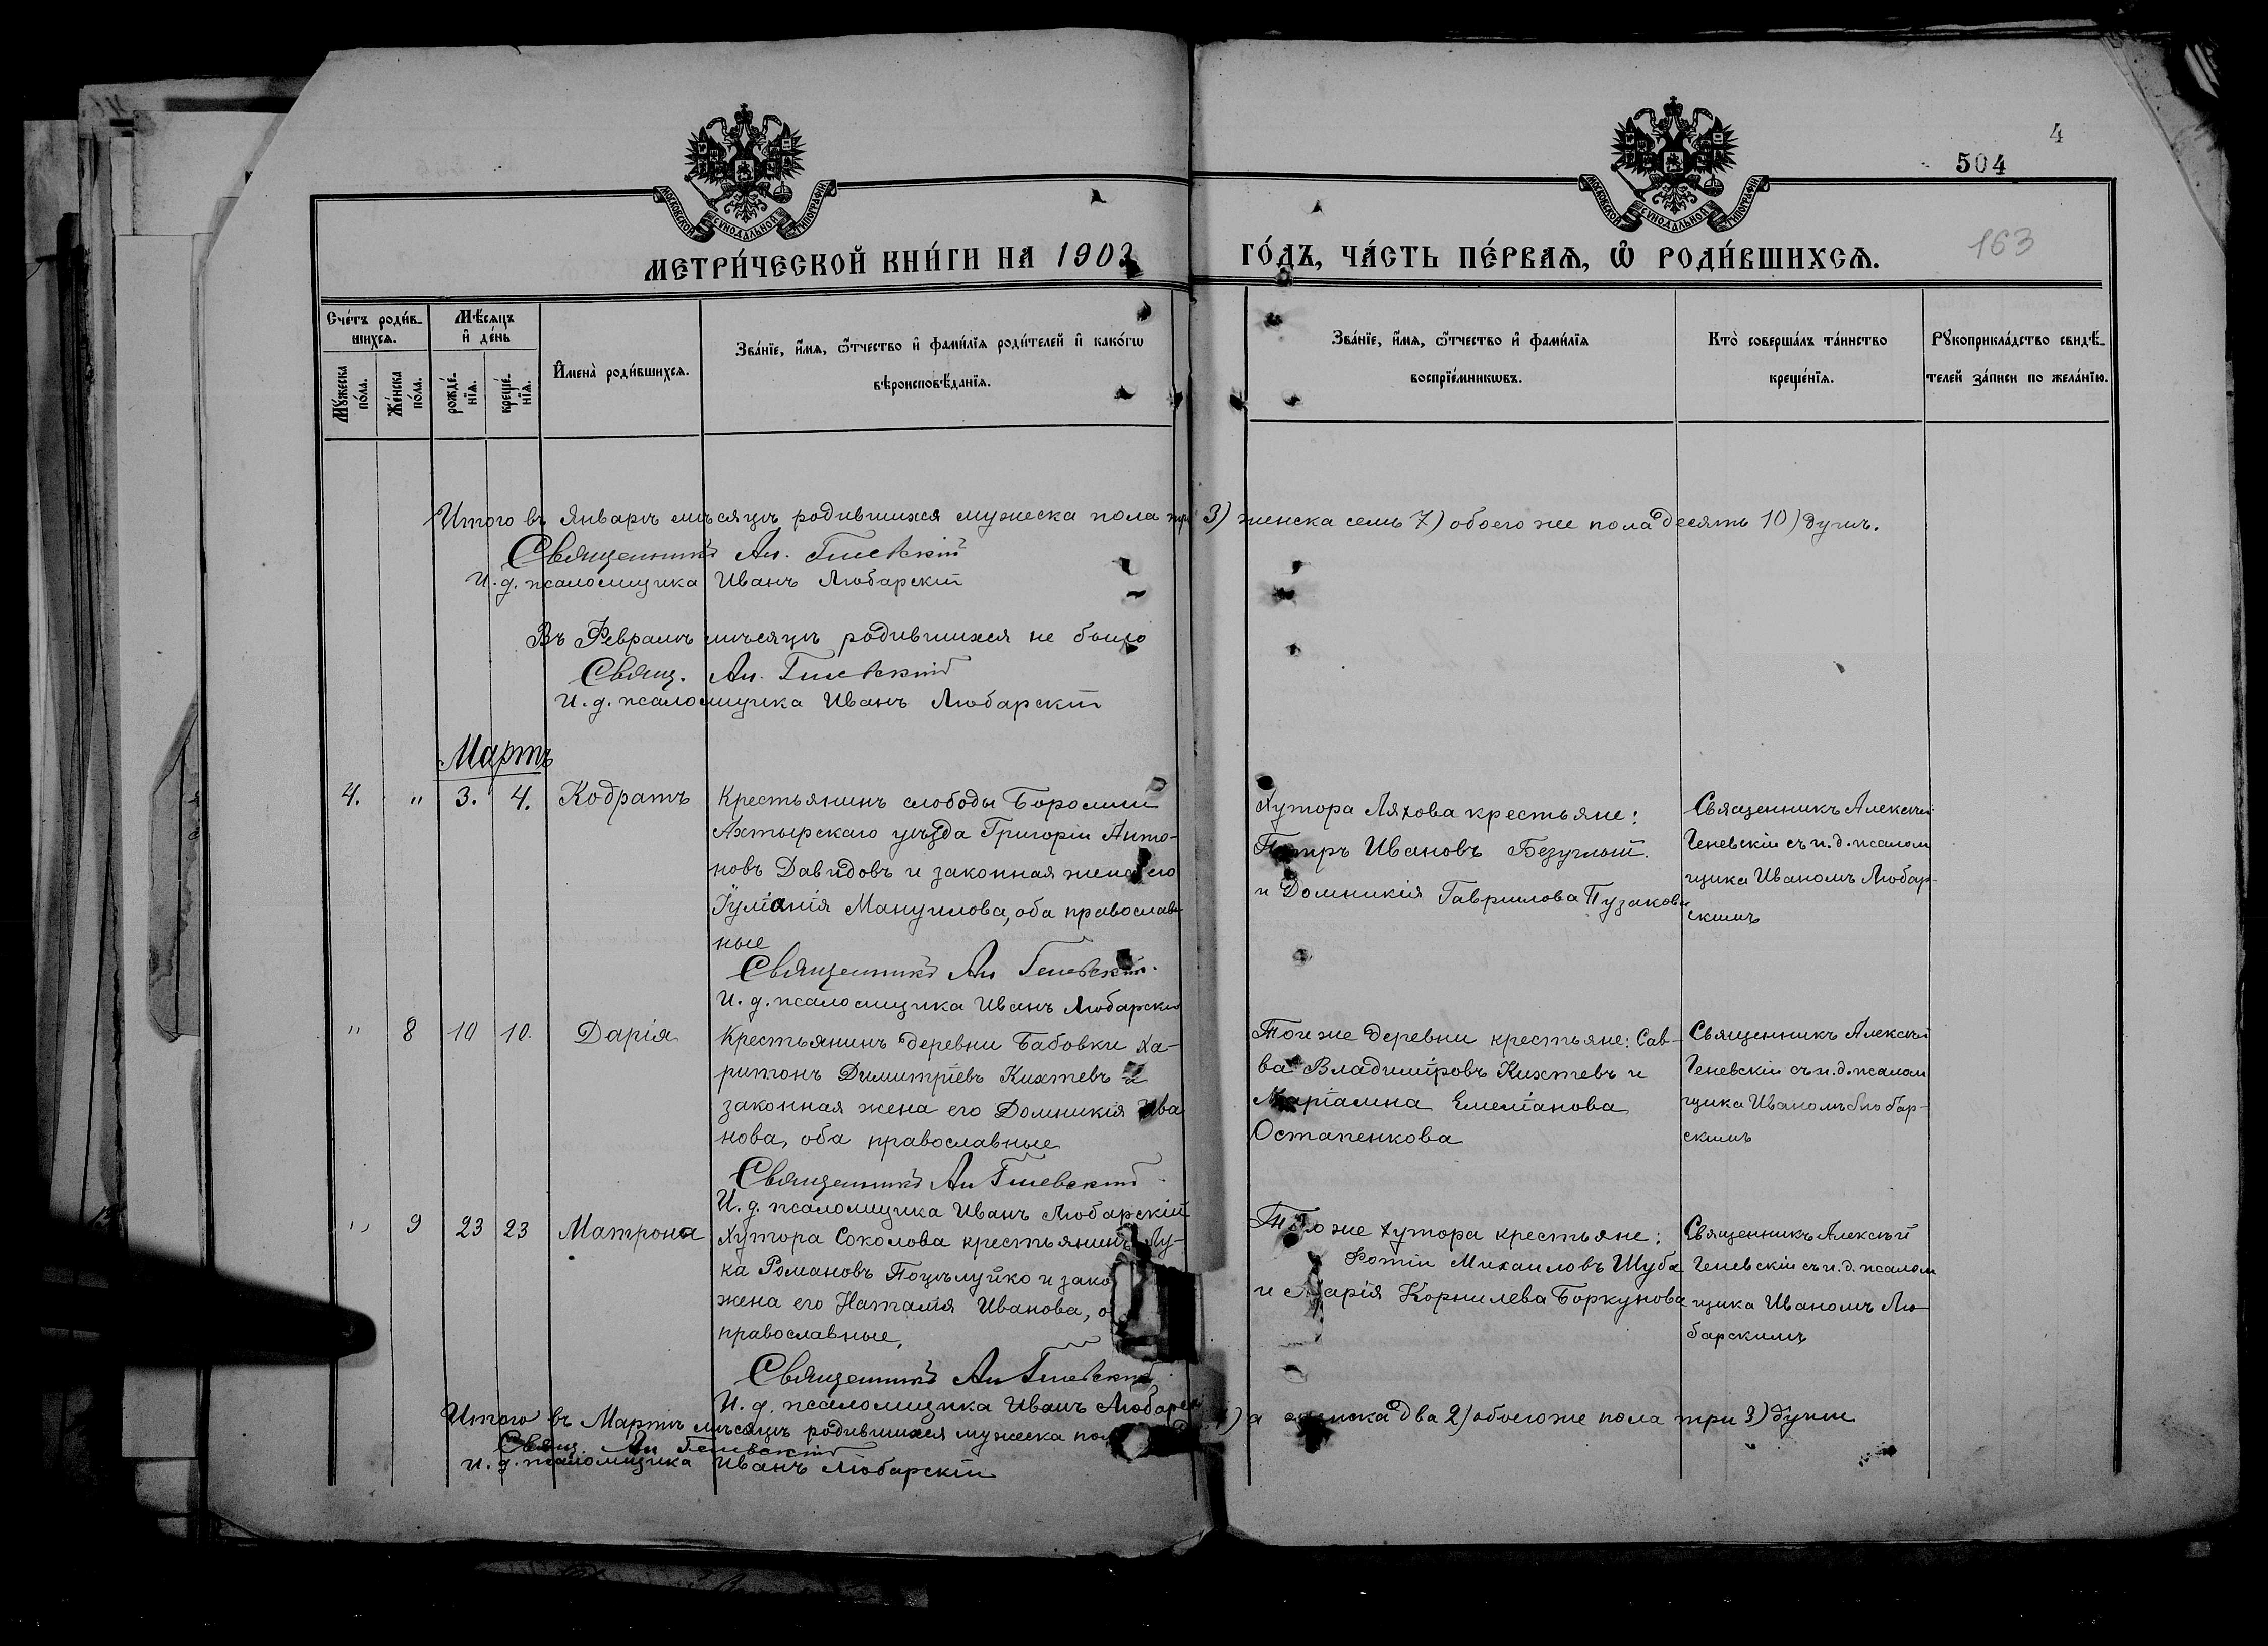 4
504
163
МОСКОВСКОЙ СѴНОДАЛЬНОЙ ТИПОГРАФІИ
МОСКОВСКОЙ СѴНОДАЛЬНОЙ ТИПОГРАФІИ
МЕТРИ́ЧЕСКОЙ КНИ́ГИ НА 1903 ГО́ДЪ, ЧА́СТЬ ПЕ́РВАѦ, Ѽ РОДИ́ВШИХСѦ.
Сче́тъ роди́в-
шихсѧ.
Му́жеска по́ла.
Же́нска по́ла.
Мѣ́сѧцъ
и҆ де́нь
рожде́-
нїѧ.
креще́-
нїѧ.
И҆мена̀ роди́вшихсѧ.
Зва́нїе, и҆́мѧ, ѻ҆́тчество и҆ фами́лїѧ роди́телей и҆ како́гѡ
вѣроисповѣ́данїѧ.
Зва́нїе, и҆́мѧ, ѻ҆́тчество и҆ фами́лїѧ
воспрїе́мникѡвъ.
Кто̀ соверша́лъ та́инство
креще́нїѧ.
Рꙋкоприкла́дство свидѣ́-
телей за́писи по жела́нїю.
Итого въ Январѣ мѣсяцѣ родившихся мужеска пола три 3) женска семь 7) обоего же пола десять 10) душъ.
Священникъ Ал. Геневскій
И. д. псаломщика Иванъ Любарскій
Въ Февралѣ мѣсяцѣ родившихся не было
Свящ. Ал. Геневскій
И. д. псаломщика Иванъ Любарскій
Мартъ
4. " 3. 4. Кодратъ
Крестьянинъ слободы Боромли
Ахтырскаго уѣзда Григорій Анто-
новъ Давидовъ и законная жена его
Іуліанія Мануилова, оба православ-
ные
Священникъ Ал Геневскій.
И. д. псаломщика Иванъ Любарскій
Хутора Ляхова крестьяне:
Петръ Ивановъ Безуглый.
и Домникія Гаврилова Пузакова
Священникъ Алексѣй
Геневскій съ и. д. псалом
щика Иваномъ Любар-
скимъ
" 8 10 10. Дарія
Крестьянинъ деревни Бабовки Ха-
ритонъ Димитріевъ Кихтевъ и
законная жена его Домникія Ива
нова, оба православные
Священникъ Ал Геневскій
И. д. псаломщика Иванъ Любарскій
Той же деревни крестьяне: Сав-
ва Владиміровъ Кихтевъ и
Маріамна Емеліанова
Остапенкова
Священникъ Алексѣй
Геневскій съ и. д. псалом
щика Иваномъ Любар-
скимъ
" 9 23 23 Матрона
Хутора Соколова крестьянинъ Лу-
ка Романовъ Поцѣлуйко и зако
жена его Наталія Иванова, о
православные,
Священникъ Ал Геневскій
И. д. псаломщика Иванъ Любарскій
Того же хутора крестьяне:
Фотій Михаиловъ Шуба
и Марія Корнилева Боркунова
Священникъ Алексѣй
Геневскій съ и. д. псалом
щика Иваномъ Лю-
барскимъ
Итого въ Мартѣ мѣсяцѣ родившихся мужеска пол ) а женска два 2) обоего же пола три 3) души
Свящ. Ал Геневскій
И. д. псаломщика Иванъ Любарскій